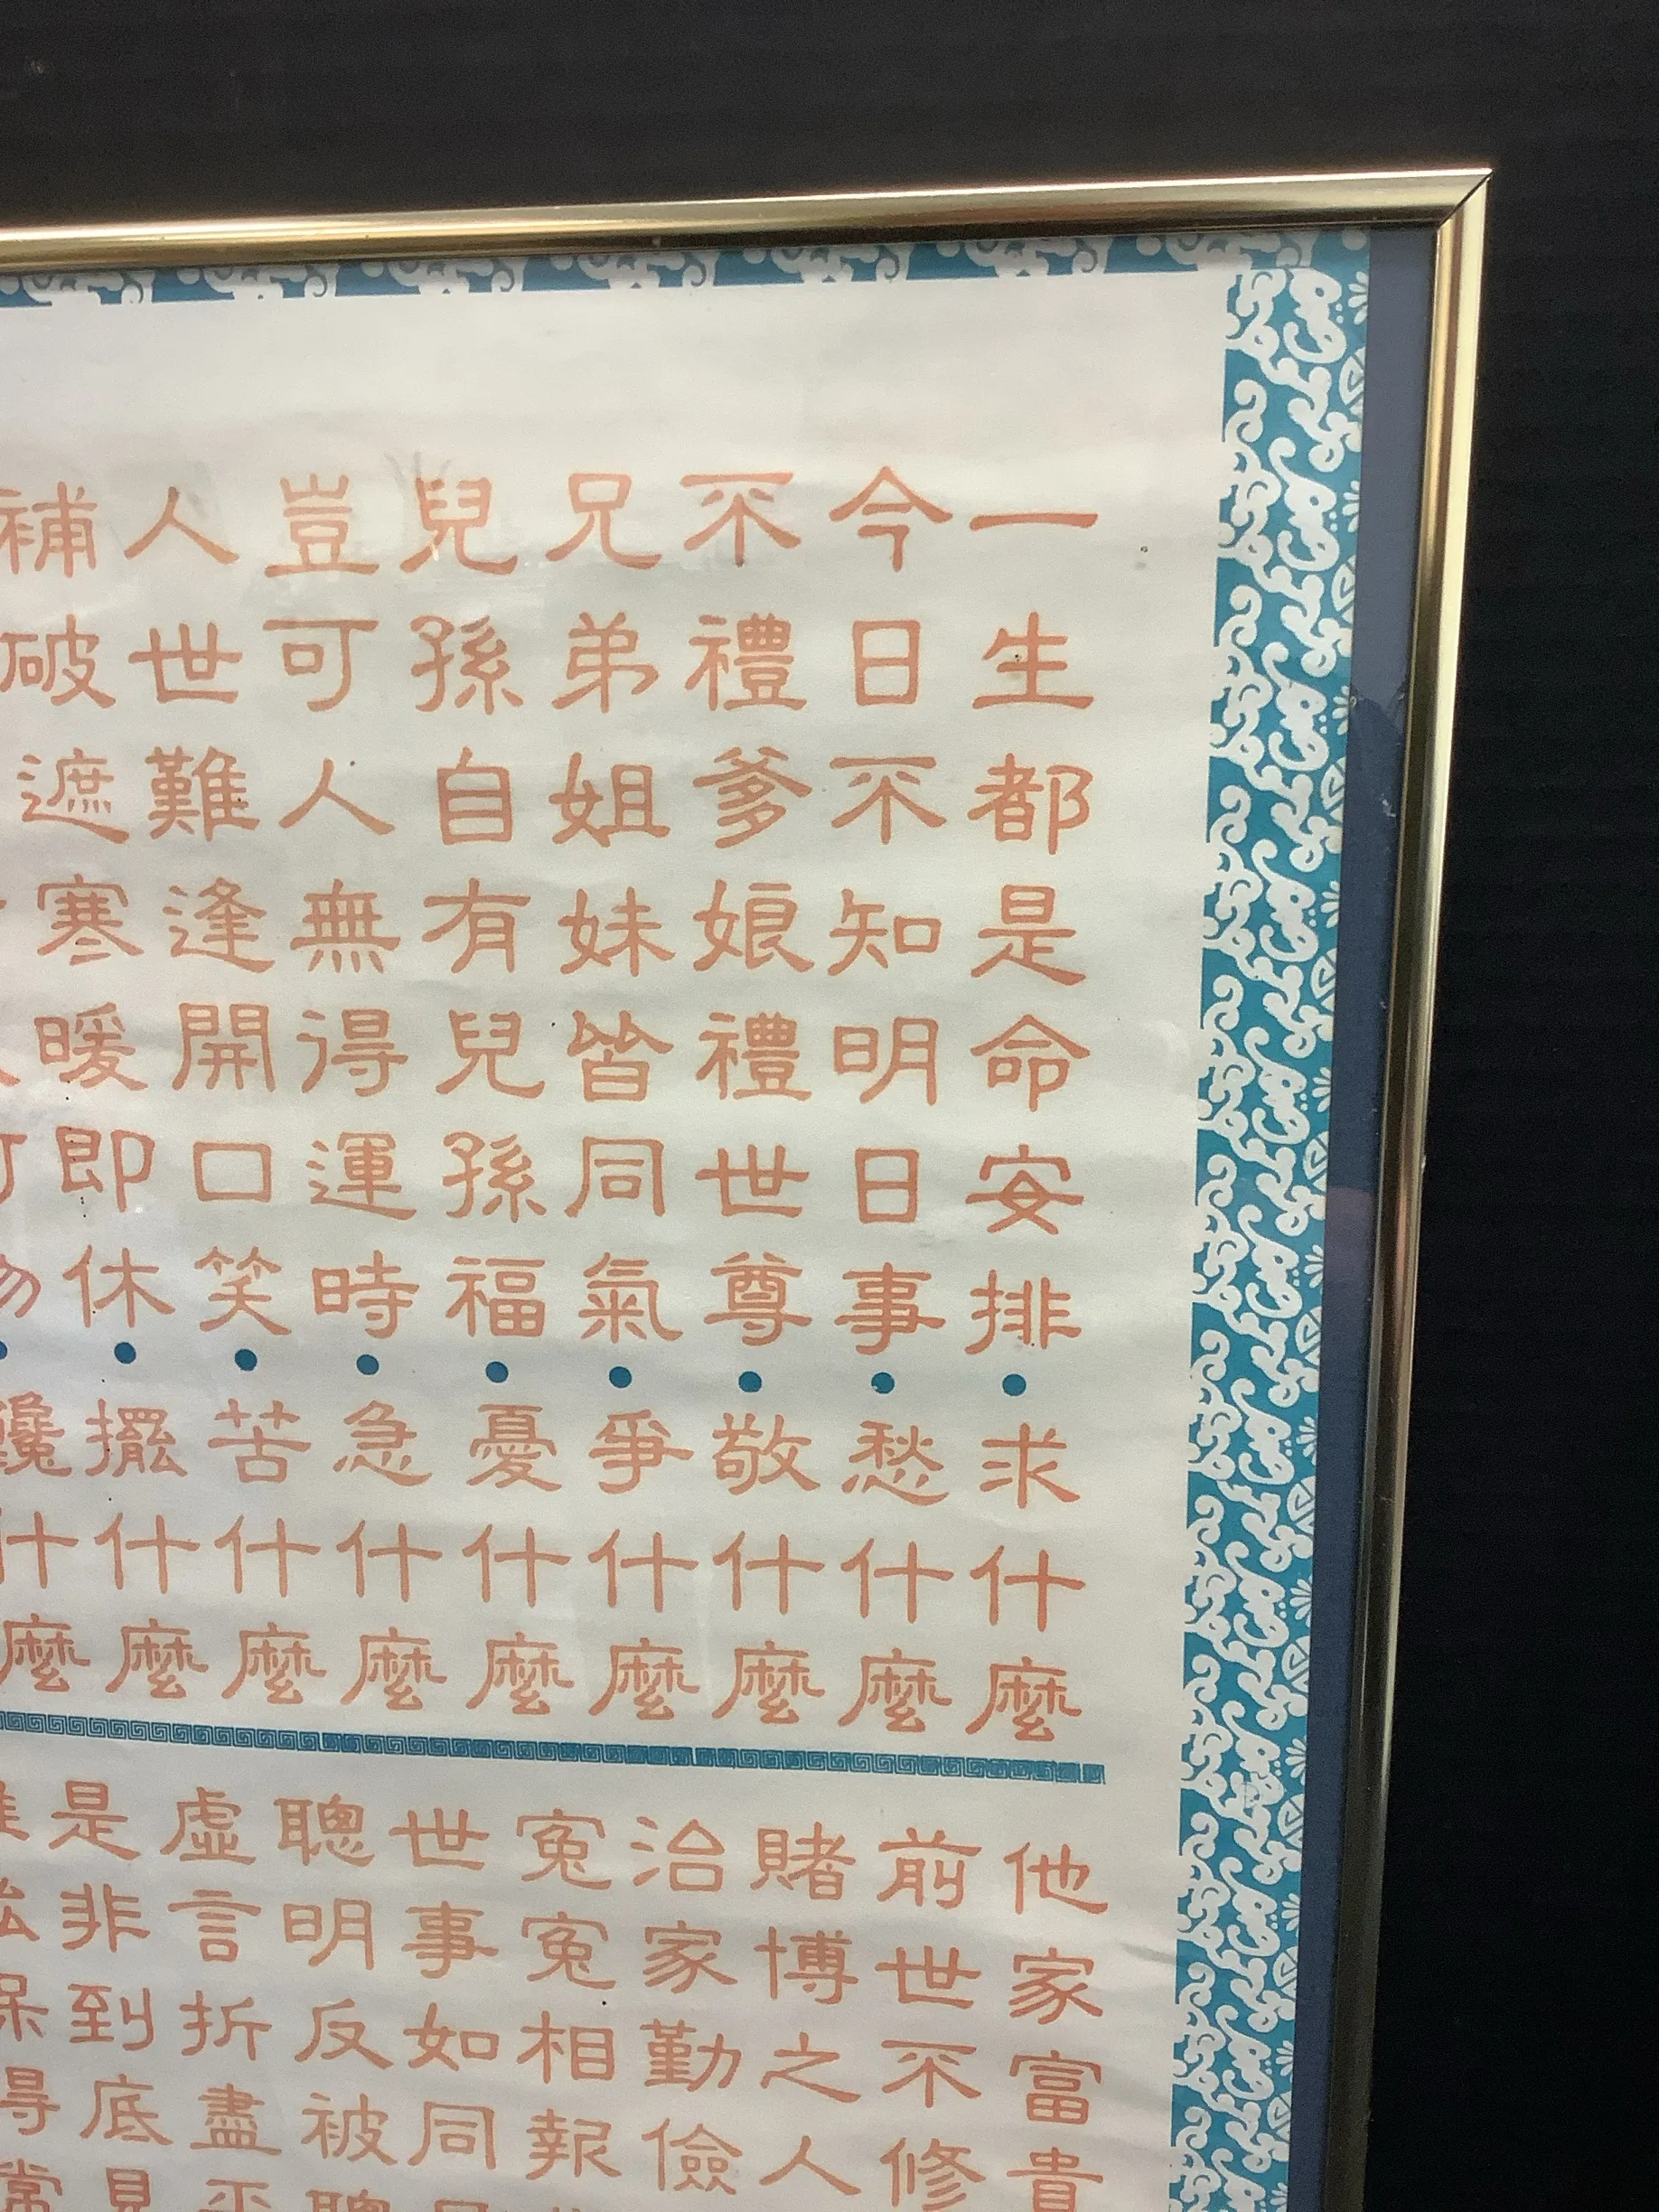 一生都是命安排•求什麼
今日不知明日事•愁什麼
不禮爹娘禮世尊•敬什麼
兄弟姐妹皆同氣•爭什麼
兒孫自有兒孫福•憂什麼
豈可人無得運時•急什麼
人世難逢開口笑•苦什麼
補破遮寒暖即休•擺什麼
什麼
他家富貴
前世不修
賭博之人
治家勤儉
冤冤相報
世事如同
聰明反被聰
虛言折盡平
是非到底見
得常